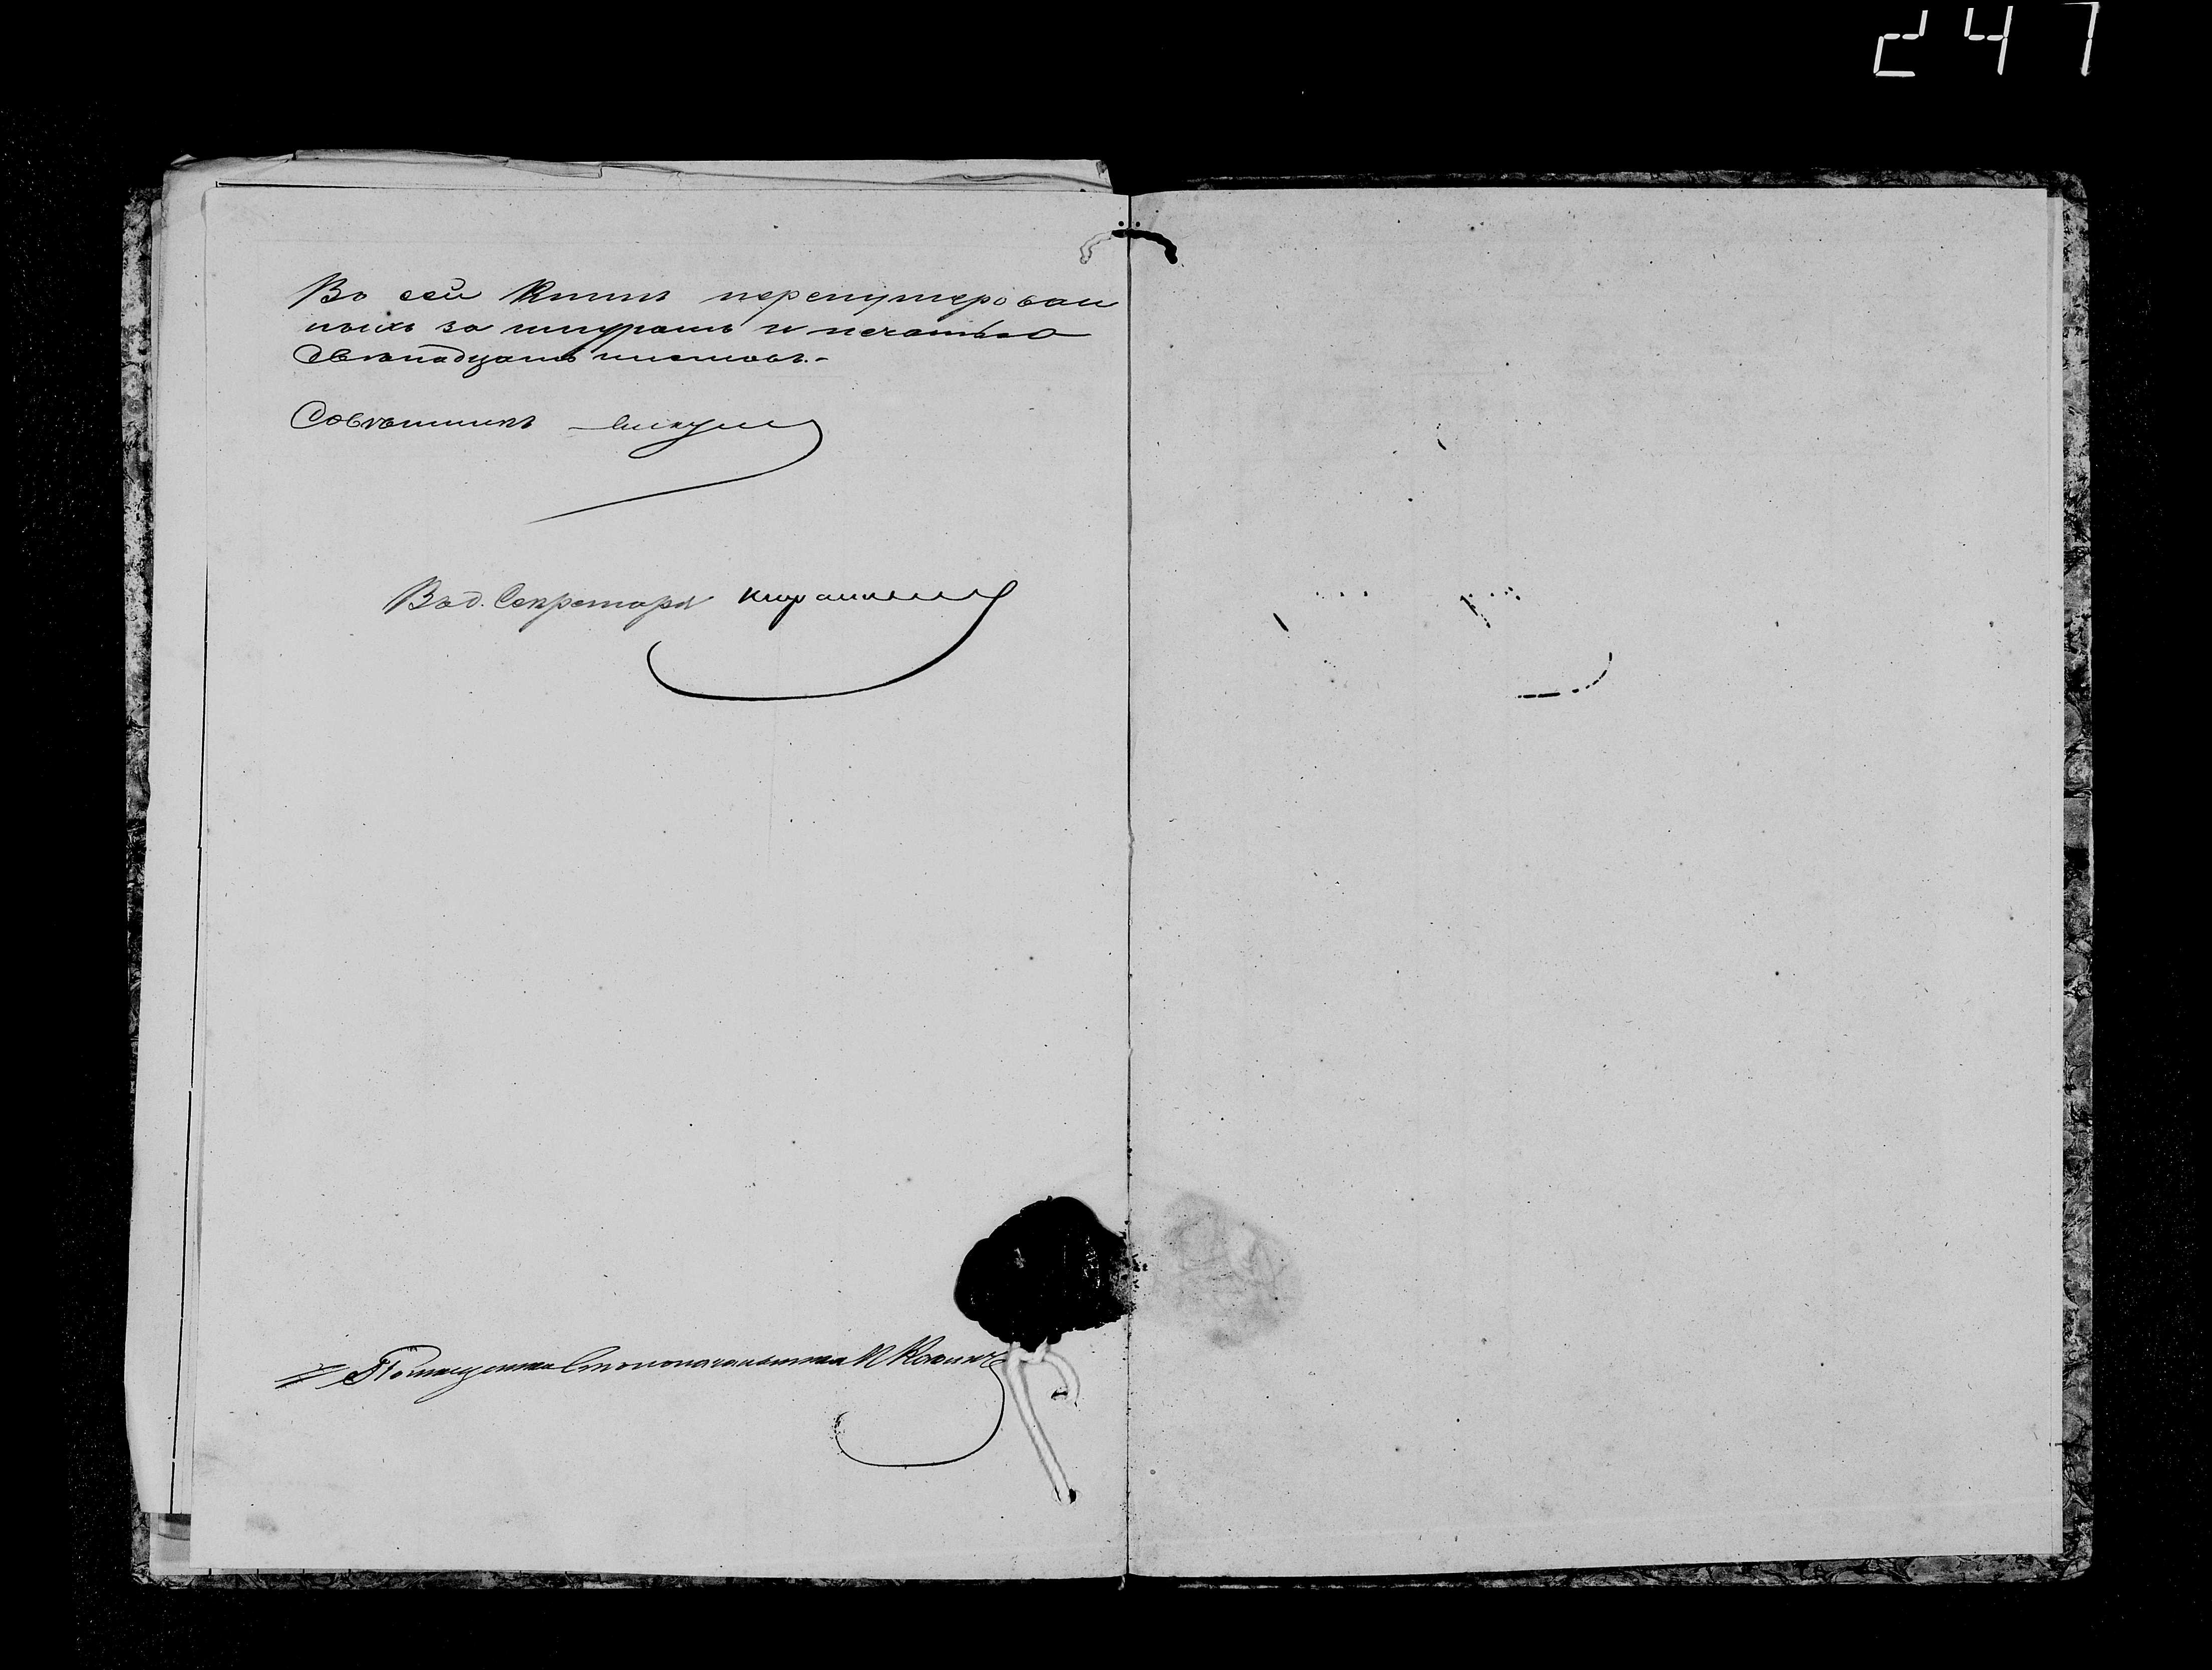 247
Въ сей Книгѣ перенумерован
ныхъ за шнуромъ и печатью
двѣнадцать листовъ.-
Совѣтникъ
Въ д. Секретаря
Помощникъ Столоначальника